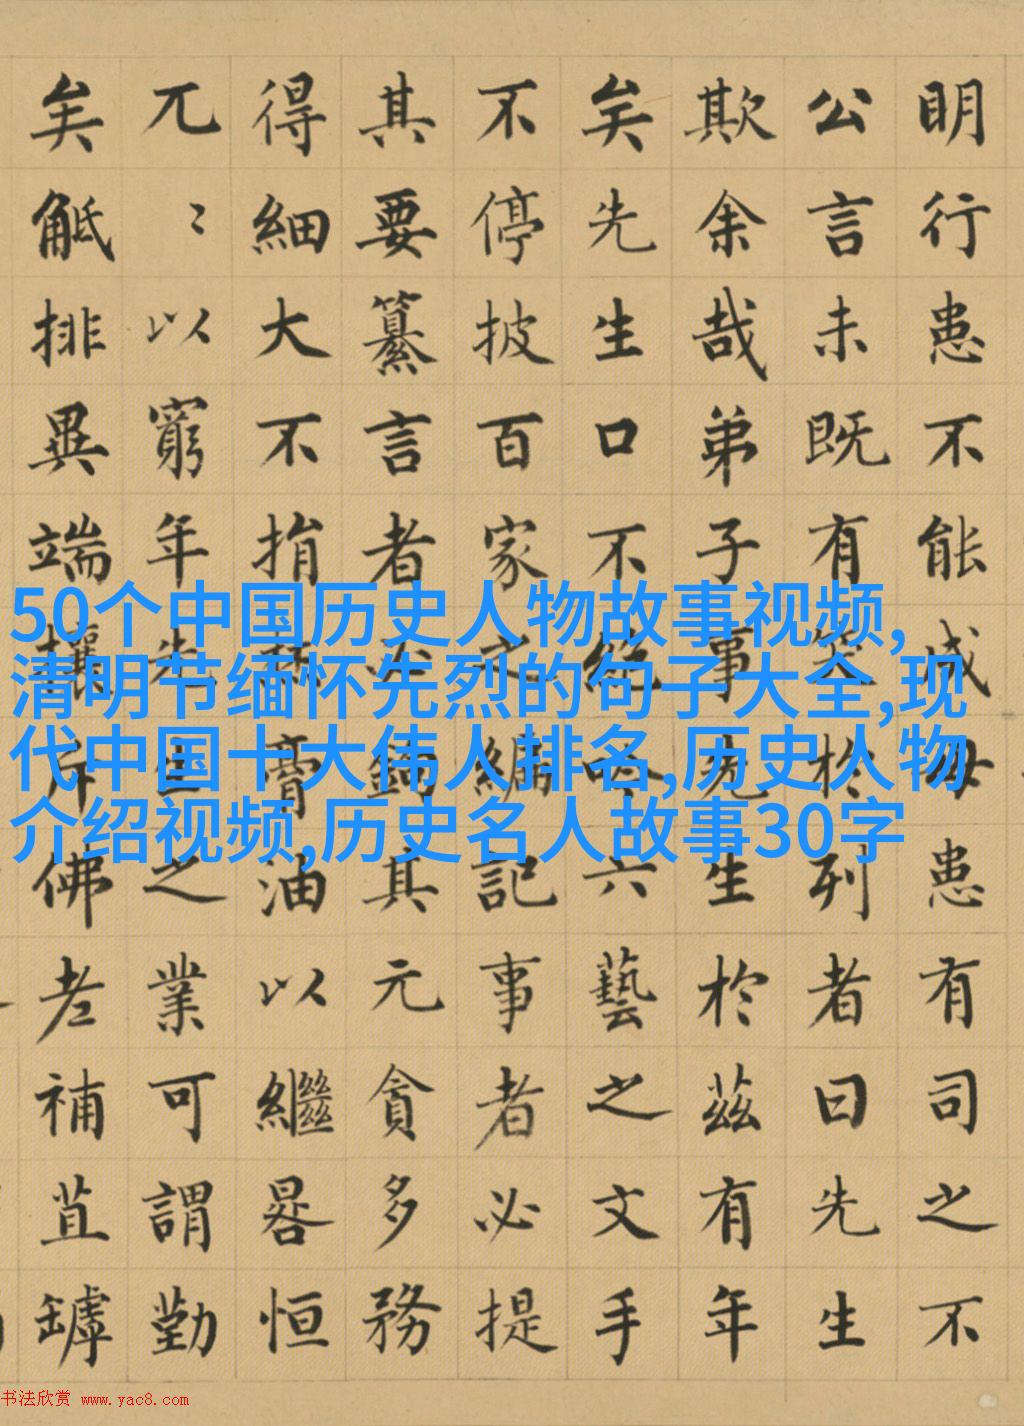 明行患不能成毋患有司之不
公言未既有笑於列者曰先生
欺余哉弟子事先生於茲有年
矣先生口不絕吟六藝之文手
不停披百家之編記事者必提
其要纂言者必鉤其元貪多務
得細大不捐焚膏油以繼晷恒
兀〻以窮年先生之業可謂勤
矣觝排異端攘斥佛老補苴罅
50个中国历史人物故事视频,
清明节缅怀先烈的句子大全,现
代中国十大伟人排名,历史人物
介绍视频,历史名人故事30字
书法欣赏 www.yac8.com